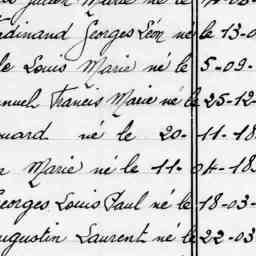 Julien Marie né le 4-03-
Ferdinand Georges Léon né le 13-0
Louis Marie né le 5-09-
Francis Marie né le 25-12-
ouard né le 20-11-18
Marie né le 11-04-18
Georges Louis Paul né le 18-03-
Augustin Laurent né le 22-03